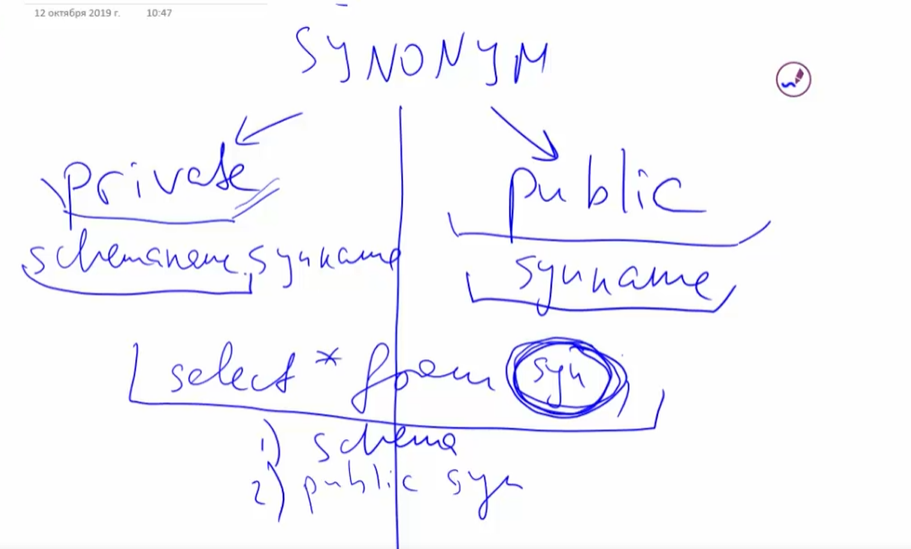 12 октября 2019 г. 10:47
SYNONYM
private public
schemaname.synname synname
select * from syn
1) schema
2) public syn